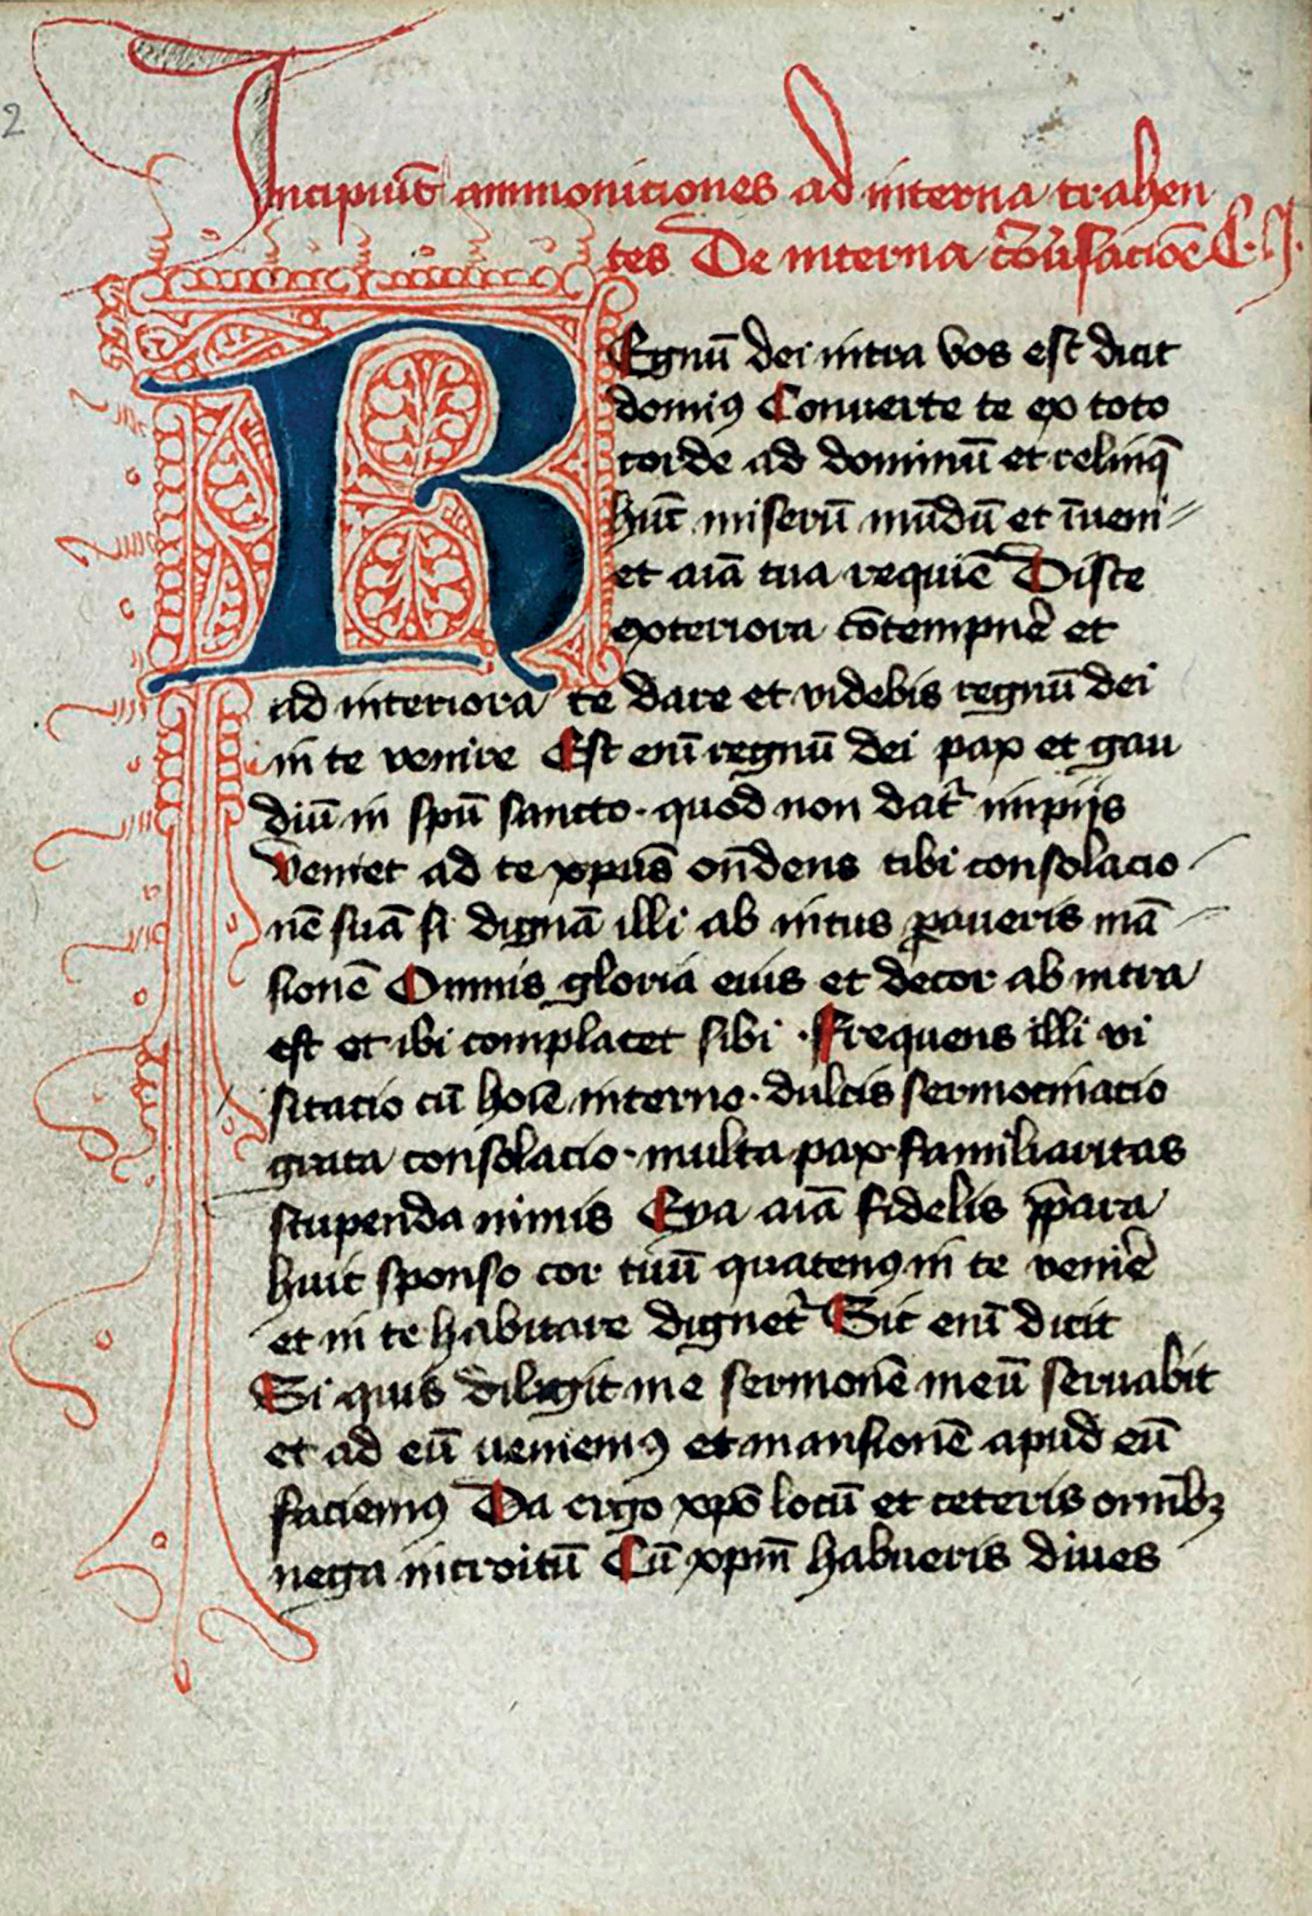 2
Incipiūt ammoniciones ad interna trahen
tes De interna cōuersacioē C. I.
REgnū dei intra vos est dicit
domiꝰ Conuerte te ex toto
corde ad dominū et relinq̄
hūc miserū mūdū et īueni
et aīa tua requiē Disce
exteriora cōtempnē et
ad interiora te dare et videbis regnū dei
in te venire Est enī regnū dei pax et gau
diū in spū sancto · quod non datr̄ impijs
Veniet ad te xpūs on̄dens tibi consolacio
nē suā si dignā illi ab intus ꝑaueris mā
sionē Omnis gloria eius et decor ab intra
est et ibi complacet sibi · Frequens illi vi
sitacio cū hoīe interno · dulcis sermocinacio
grata consolacio · multa pax familiaritas
stupenda nimis Eya aīa fidelis p̄para
huic sponso cor tuū quatenꝰ in te veniē
et in te habitare dignetr̄ Sic enī dicit
Si quis diligit me sermonē meū seruabit
et ad eū ueniemꝰ et mansionē apud eū
faciemꝰ Da ergo xpō locū et ceteris omībꝫ
nega introitū Cū xpm̄ habueris diues